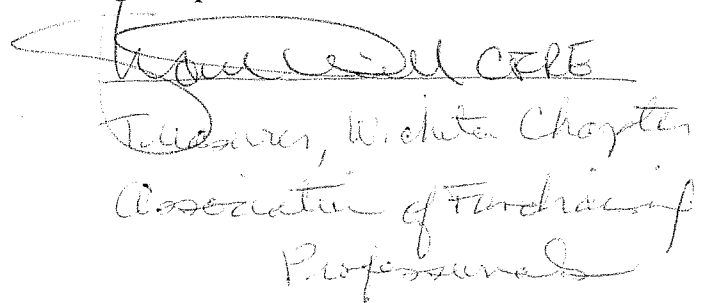 CFRE
Treasurer, Wichita Chapter
Association of Fundraising
Professionals